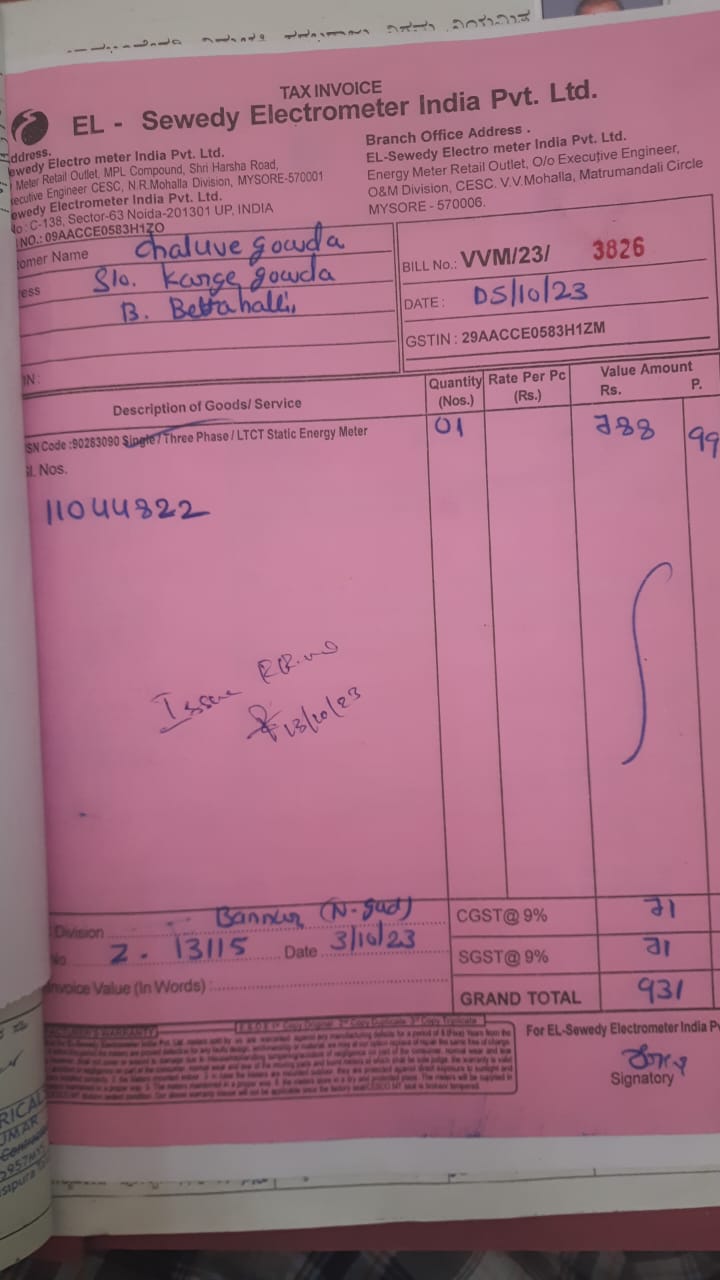 TAX INVOICE
EL - Sewedy Electrometer India Pvt. Ltd.
ddress.
ewedy Electro meter India Pvt. Ltd.
Meter Retail Outlet, MPL Compound, Shri Harsha Road,
ecutive Engineer CESC, N.R.Mohalla Division, MYSORE-570001
ewedy Electrometer India Pvt. Ltd.
No : C-138, Sector-63 Noida-201301 UP, INDIA
NO.: 09AACCE0583H1ZO
Branch Office Address .
EL-Sewedy Electro meter India Pvt. Ltd.
Energy Meter Retail Outlet, O/o Executive Engineer,
O&M Division, CESC. V.V.Mohalla, Matrumandali Circle
MYSORE - 570006.
omer Name Chaluve gowda
ess S/o. Karige gowda
B. Bettahalli,
BILL No.: VVM/23/ 3826
DATE : 05/10/23
GSTIN : 29AACCE0583H1ZM
IN :
Description of Goods/ Service Quantity (Nos.) Rate Per Pc (Rs.) Value Amount Rs. P.
SN Code :90283090 Single / Three Phase / LTCT Static Energy Meter 01 788 99
l. Nos.
11044822
Issue RR.no
13/10/23
Division Bannur (N-gud)
No Z. 13115 Date 3/10/23
Invoice Value (In Words) :
CGST@ 9% 71
SGST@ 9% 71
GRAND TOTAL 931
E.& O.E 1st Copy Original 2nd Copy Duplicate 3rd Copy Triplicate
For EL-Sewedy Electrometer India P
Signatory
RICAL
UMAR